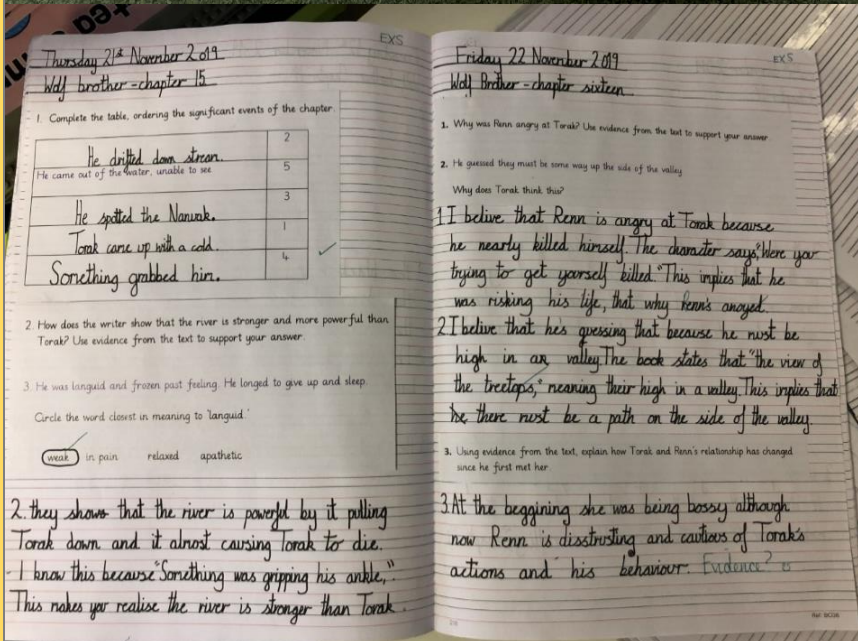 EXS
Thursday 21st November 2019
Wolf brother - chapter 15
1. Complete the table, ordering the significant events of the chapter.
He drifted down stream. 2
He came out of the water, unable to see 5
He spotted the Nanuak. 3
Torak came up with a cold. 1
Something grabbed him. 4
2. How does the writer show that the river is stronger and more powerful than
Torak? Use evidence from the text to support your answer.
3. He was languid and frozen past feeling. He longed to give up and sleep.
Circle the word closest in meaning to 'languid.'
weak in pain relaxed apathetic
2. they shows that the river is powerful by it pulling
Torak down and it almost causing Torak to die.
I know this because "Something was gripping his ankle,".
This makes you realise the river is stronger than Torak.
EXS
Friday 22 November 2019
Wolf Brother - chapter sixteen
1. Why was Renn angry at Torak? Use evidence from the text to support your answer
2. He guessed they must be some way up the side of the valley
Why does Torak think this?
1 I belive that Renn is angry at Torak because
he nearly killed himself. The character says, "Were you
trying to get yourself killed." This implies that he
was risking his life, that why Renn's anoyed.
2 I belive that he's guessing that because he must be
high in an valley. The book states that "the view of
the treetops," meaning their high in a valley. This implies that
there must be a path on the side of the valley.
3. Using evidence from the text, explain how Torak and Renn's relationship has changed
since he first met her.
3. At the beggining she was being bossy although
now Renn is disstrusting and cautious of Torak's
actions and his behaviour. Evidence?